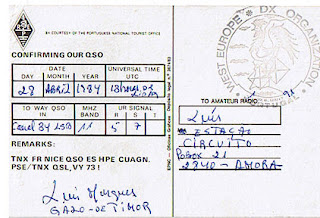 BY COURTESY OF THE PORTUGUESE NATIONAL TOURIST OFFICE
CONFIRMING OUR QSO
DAY
DATE
MONTH
YEAR
UNIVERSAL TIME
UTC
28
ABRIL
1984
TO WAY QSO
IN
MHZ
BAND
UR SIGNAL
R
S
T
Canal 34 LSB
11
5
7
REMARKS:
TNX FR NICE QSO ES HPE CUAGN.
PSE/TNX QSL, VY 73!
Luis Marques
GALO-DE TIMOR
WEST EUROPE DX ORGANIZATION
PORTUGAL
TO AMATEUR RADIO:
Luís
ESTAÇÃO
CIRCUITO
POBOX 21
2840-AMORA